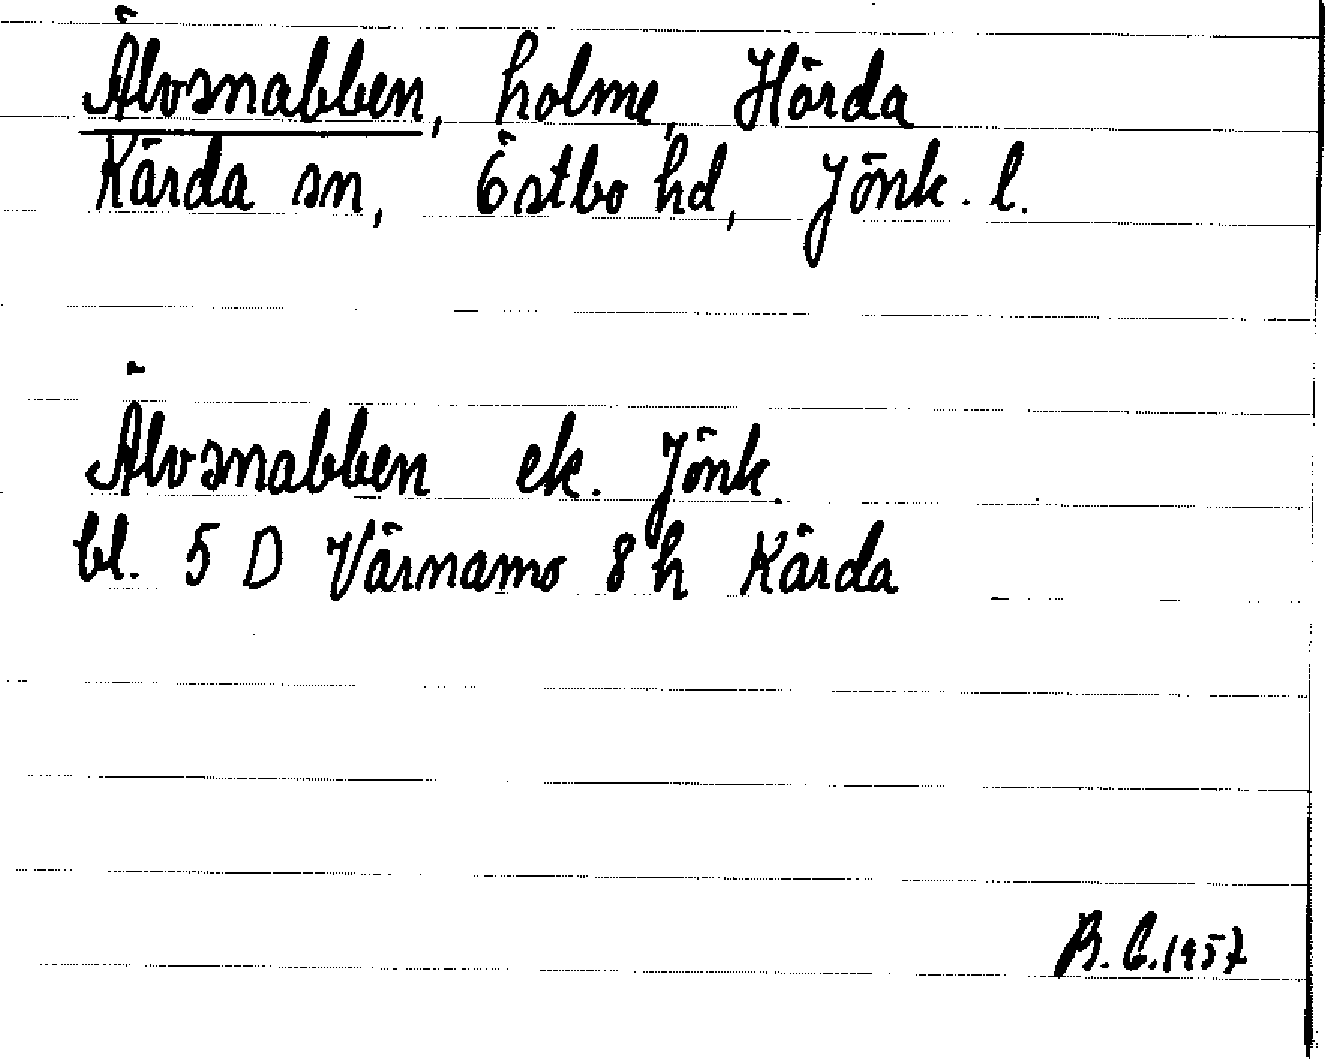 Älvsnabben, holme, Hörda
Kärda sn, Östbo hd, Jönk. l.
Älvsnabben ek. Jönk.
bl. 5 D Värnamo 8 h Kärda
B. E. 1957